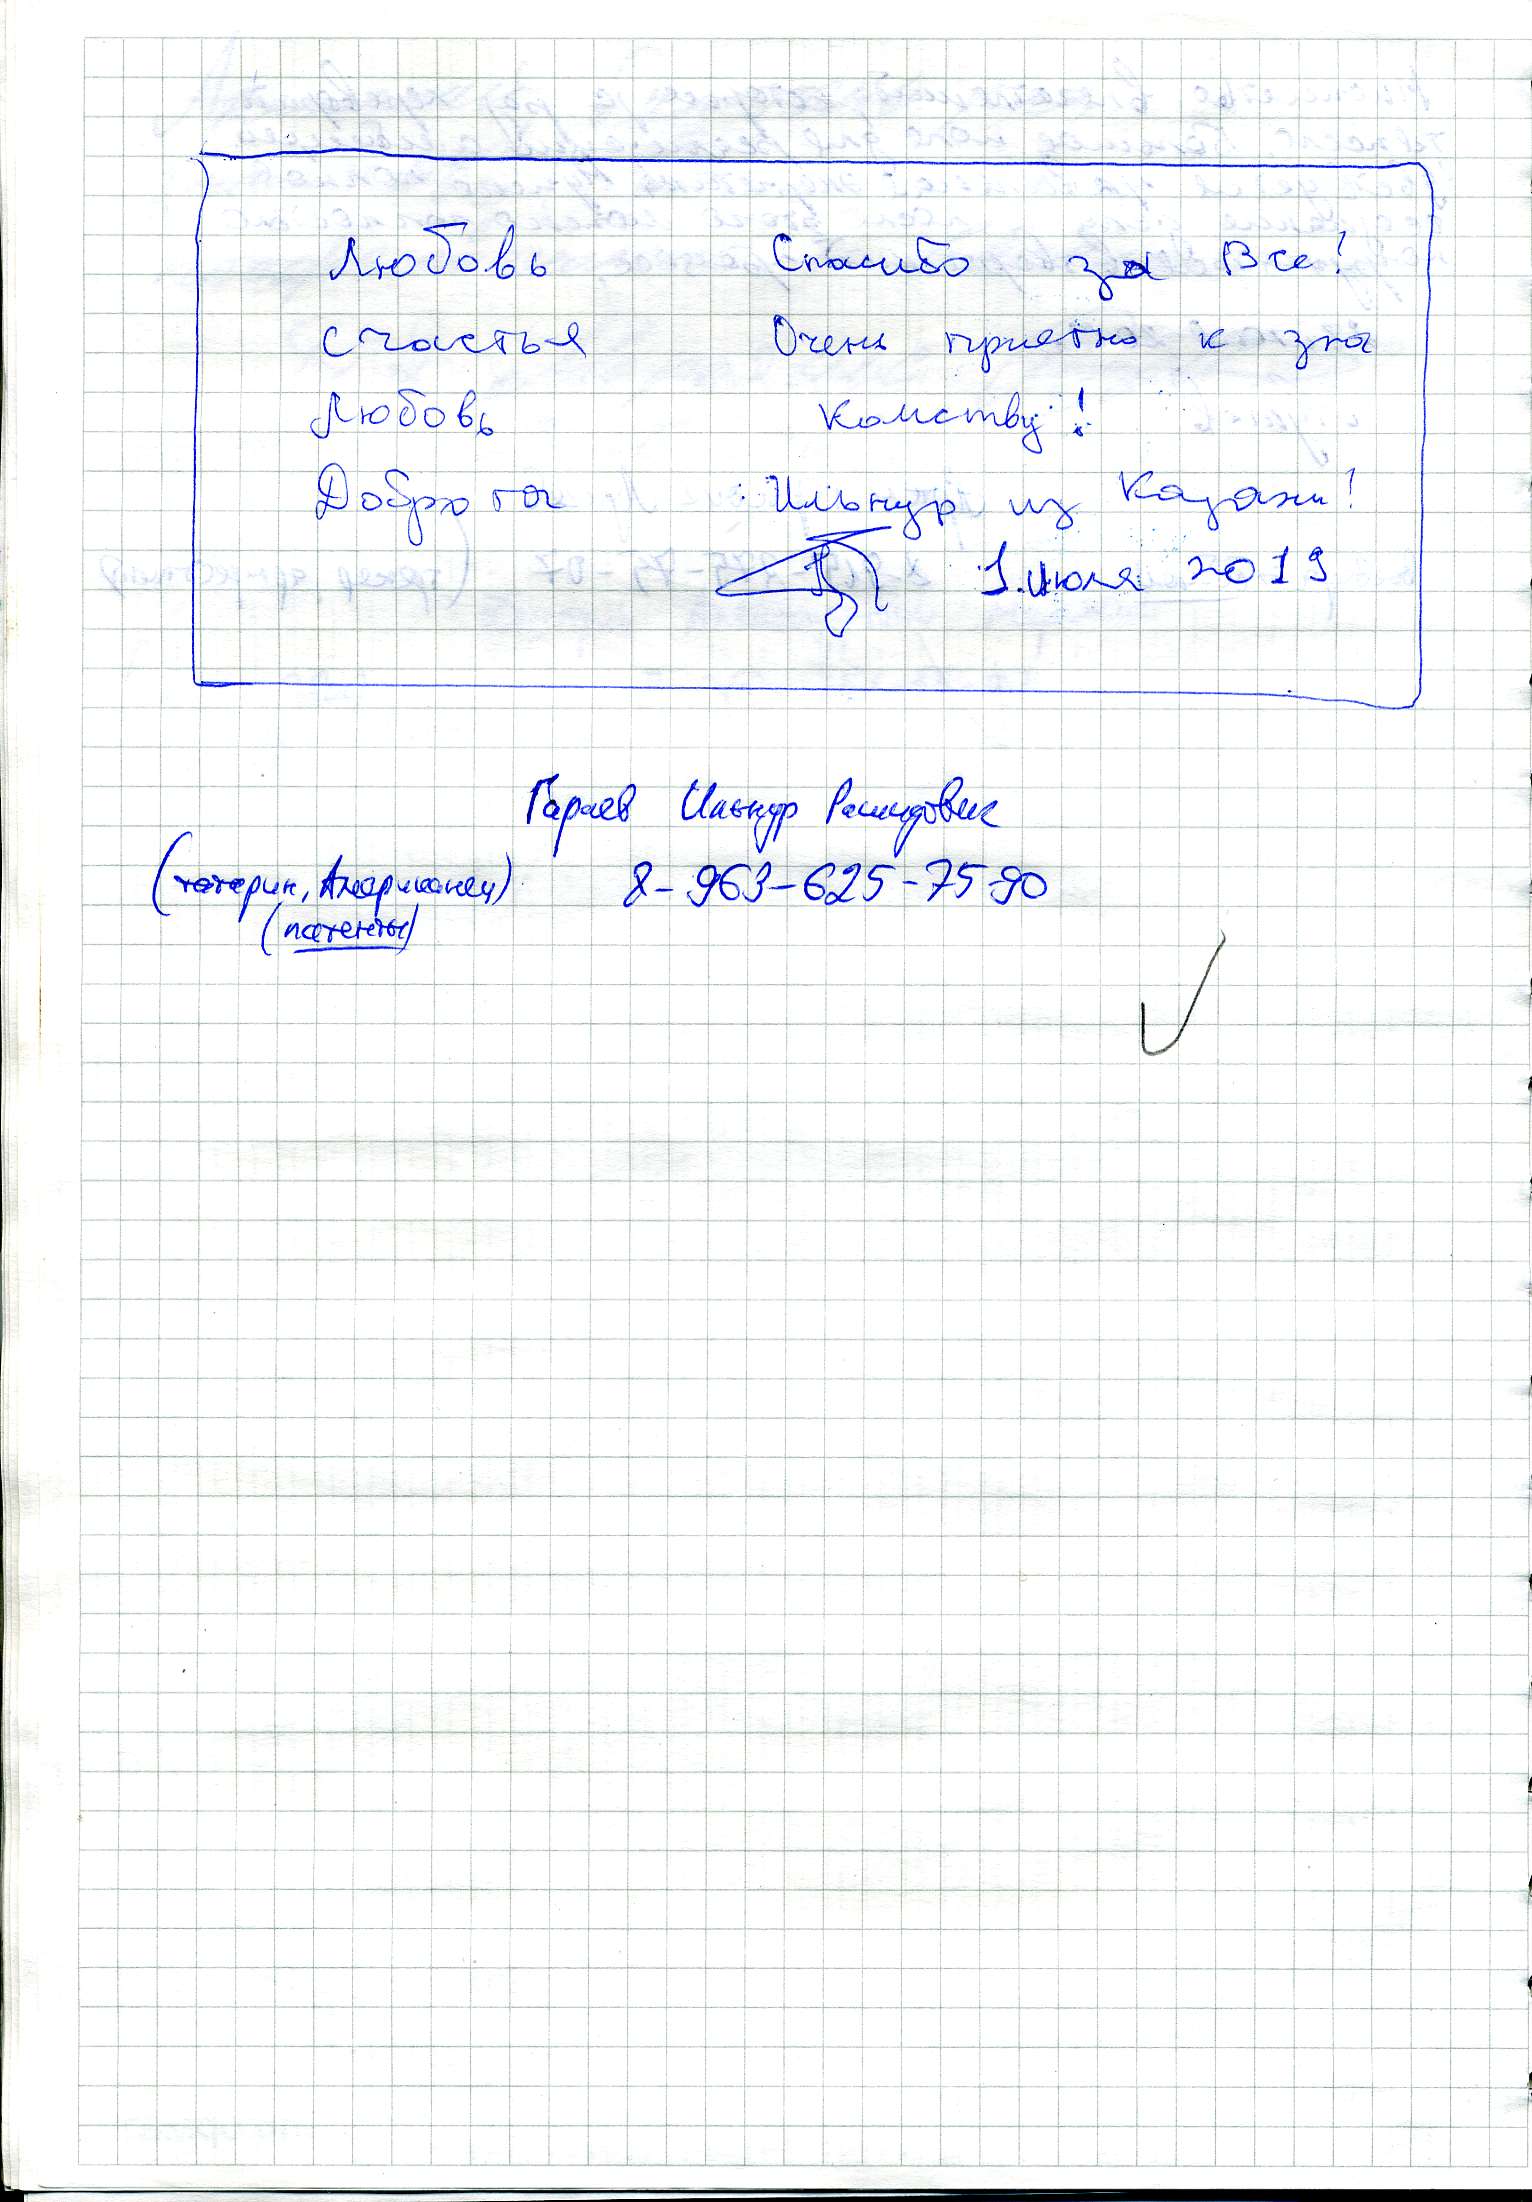 Любовь Спасибо за Все!
Счастья Очень приятно к зна
Любовь комству!
Доброта Ильнур из Казани!
1 июля 2019
Гараев Ильнур Рашидович
(татарин, Американец) 8-963-625-75-90
(патенты)